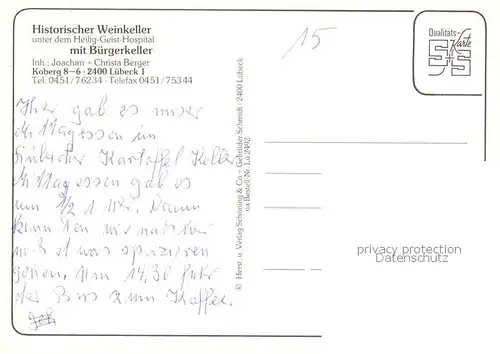 Historischer Weinkeller
unter dem Heilig-Geist-Hospital
mit Bürgerkeller
Inh.: Joachim + Christa Berger
Koberg 8–6 · 2400 Lübeck 1
Tel. 0451/76234 · Telefax 0451/75344
Hier gab es unser
Mittagessen im
Kartoffel Keller
Mittagessen gab es
um 1/2 1 Uhr. Dann
konnten wir
noch etwas spazieren
gehen. Um 14,30 fuhr
der Bus zum Kaffee.
15
Qualitäts-
Karte
S+S
© Herst. u. Verlag Schöning & Co + Gebrüder Schmidt · 2400 Lübeck
na Bestell-Nr. Lü 2492
privacy protection
Datenschutz